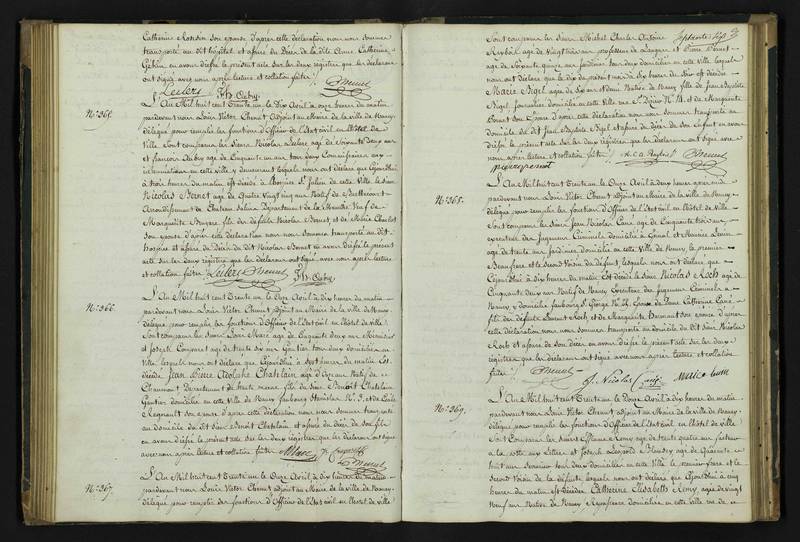 Catherine Rossin son épouse d'après cette déclaration nous nous sommes
transporté au dit hôpital et assuré du décès de la dite Anne Catherine
en avons dressé le présent acte sur les deux registres que les déclarans
ont signé avec nous après lecture et collation faite.
Leclerc Th Aubry
N° 365.
L'An Mil huit cent Trente un le Dix Avril à onze heures du matin
pardevant nous Louis Victor Chenut adjoint au Maire de la ville de Nancy,
délégué pour remplir les fonctions d'Officier de l'Etat civil en l'hôtel de
Ville Sont comparus les Sieurs Nicolas Leclerc agé de Soixante Deux ans
et françois Aubry agé de Cinquante un ans tous deux Commissionnaires
en cette ville y demeurant lesquels nous ont déclaré que
à trois heures du matin est décédé à l'hospice St Julien de cette ville le Sieur
Nicolas Bonet agé de Quatre Vingt ans Natif de
Arrondissement de Chateau Salins Département de la Meurthe Veuf de
Marguerite fils des défunts Nicolas Bonet, et de Marie
son épouse d'après cette déclaration nous nous sommes transporté au dit
hospice et assuré du Décès du dit Nicolas Bonet en avons dressé le présent
acte sur les deux registres que les déclarans ont signé, avec nous après lecture
et collation faite. Leclerc Th Aubry
N° 366.
L'An Mil huit cent Trente un le Onze Avril à dix heures du matin
pardevant nous Louis Victor Chenut adjoint au Maire de la ville de Nancy
délégué pour remplir les fonctions d'Officier de l'Etat civil en l'hôtel de Ville
Sont comparus les Sieurs Louis Marc agé de Cinquante deux ans Menuisier
et Joseph agé de trente six ans Gantier tous deux domiciliés en cette
Ville lesquels nous ont déclaré que Cejourd'hui à Sept heures du matin Est
décédé Jean Pierre Adolphe Chatelain agé d'Un an Natif de
Chaumont Département de la haute marne fils du Sieur Benoit Chatelain
Gantier domicilié en cette Ville de Nancy faubourg Stanislas N° 3, et de
Regnault Son épouse d'après cette déclaration nous nous sommes transporté
au domicile du dit Sieur Benoit Chatelain et assuré du décès de son fils
en avons dressé le présent acte sur les deux registres que les déclarans ont signé
avec nous après lecture et collation faite. Marc
N° 367.
L'An Mil huit cent Trente un le Onze Avril à dix heures du matin
pardevant nous Louis Victor Chenut adjoint au Maire de la ville de Nancy
délégué pour remplir les fonctions d'Officier de l'Etat civil en l'hôtel de ville
Sont comparus les Sieurs Michel Charles Antoine
agé de Vingt trois ans professeur de Langues et Pierre Bonet
agé de Soixante quinze ans Jardinier tous deux domiciliés en cette ville lesquels
nous ont déclaré que le dix du présent mois à dix heures du Soir est décédée
Marie Nigel agée de Six ans Native de Nancy fille de Jean Baptiste
Nigel domicilié en cette ville rue St Dizier N° et de Marguerite
Bonet Son épouse d'après cette déclaration nous nous sommes transporté au
domicile du dit Jean Baptiste Nigel et assuré du décès de Son Enfant en avons
dressé le présent acte sur les deux registres que les déclarans ont signé avec
nous après lecture et collation faite.
N° 368.
L'An Mil huit cent Trente un le Onze Avril à deux heures après midi
pardevant nous Louis Victor Chenut adjoint au Maire de la ville de Nancy
délégué pour remplir les fonctions d'Officier de l'Etat civil en l'hôtel de Ville
Sont comparus les Sieurs Jean Nicolas agé de Cinquante trois ans
exécuteur des Jugemens Criminels domicilié à Epinal et Maurice
agé de trente ans Jardinier domicilié en cette Ville de Nancy, le premier
Beau frère et le Second Voisin du défunt lesquels nous ont déclaré que
Cejourd'hui à dix heures du matin Est décédé le Sieur Nicolas Roch agé de
Cinquante deux ans Natif de Nancy Exécuteur des Jugemens Criminels à
Nancy y domicilié faubourg St George N° Epoux de Dame Catherine
fils des défunts Laurent Roch et de Marguerite Son épouse d'après
cette déclaration nous nous sommes transporté au domicile du dit Sieur Nicolas
Roch et assuré de Son décès en avons dressé le présent acte sur les deux
régistres que les déclarans ont signé avec nous après lecture et collation
faite.
J. Nicolas
N° 369.
L'An Mil huit cent Trente un le Onze Avril à dix heures du matin
pardevant nous Louis Victor Chenut adjoint au Maire de la ville de Nancy
délégué pour remplir les fonctions d'Officier de l'Etat civil en l'hôtel de ville
Sont Comparus les Sieurs Etienne Remy agé de trente quatre ans facteur
à la poste aux Lettres et Joseph Léopold agé de Quarante
huit ans tous deux domiciliés en cette Ville le premier frère et le
Second Voisin de la défunte lesquels nous ont déclaré que Cejourd'hui à cinq
heures du matin est décédée Catherine Elisabeth Remy agée de vingt
Neuf ans Native de Nancy Repasseuse domiciliée en cette ville rue de